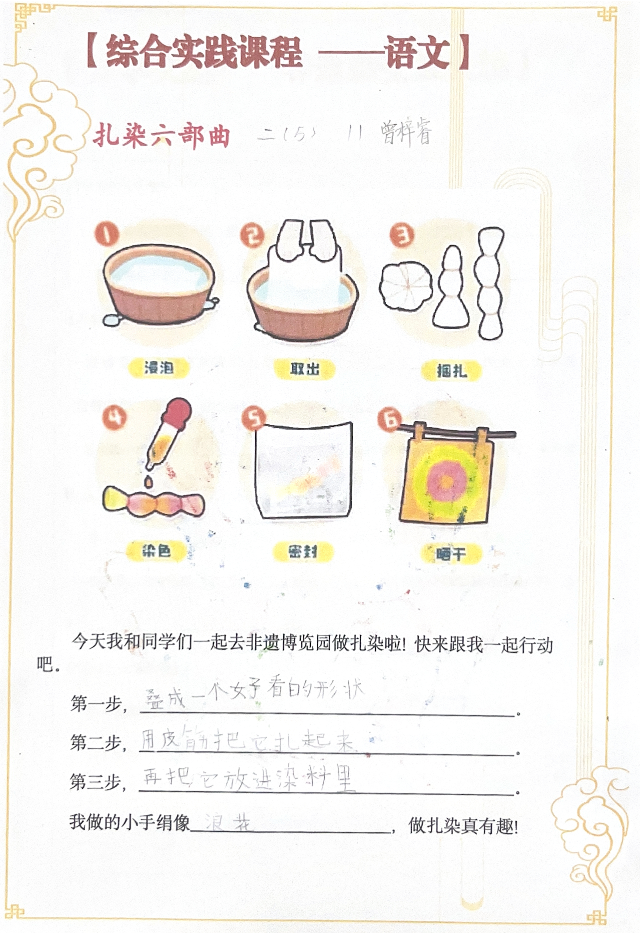 【综合实践课程 ——语文】
扎染六部曲 二(5) 11 曾梓睿
1 2 3
浸泡 取出 捆扎
4 5 6
染色 密封 晒干
今天我和同学们一起去非遗博览园做扎染啦！快来跟我一起行动
吧。
第一步，叠成一个女子看的形状。
第二步，用皮筋把它扎起来。
第三步，再把它放进染料里。
我做的小手绢像浪花，做扎染真有趣！